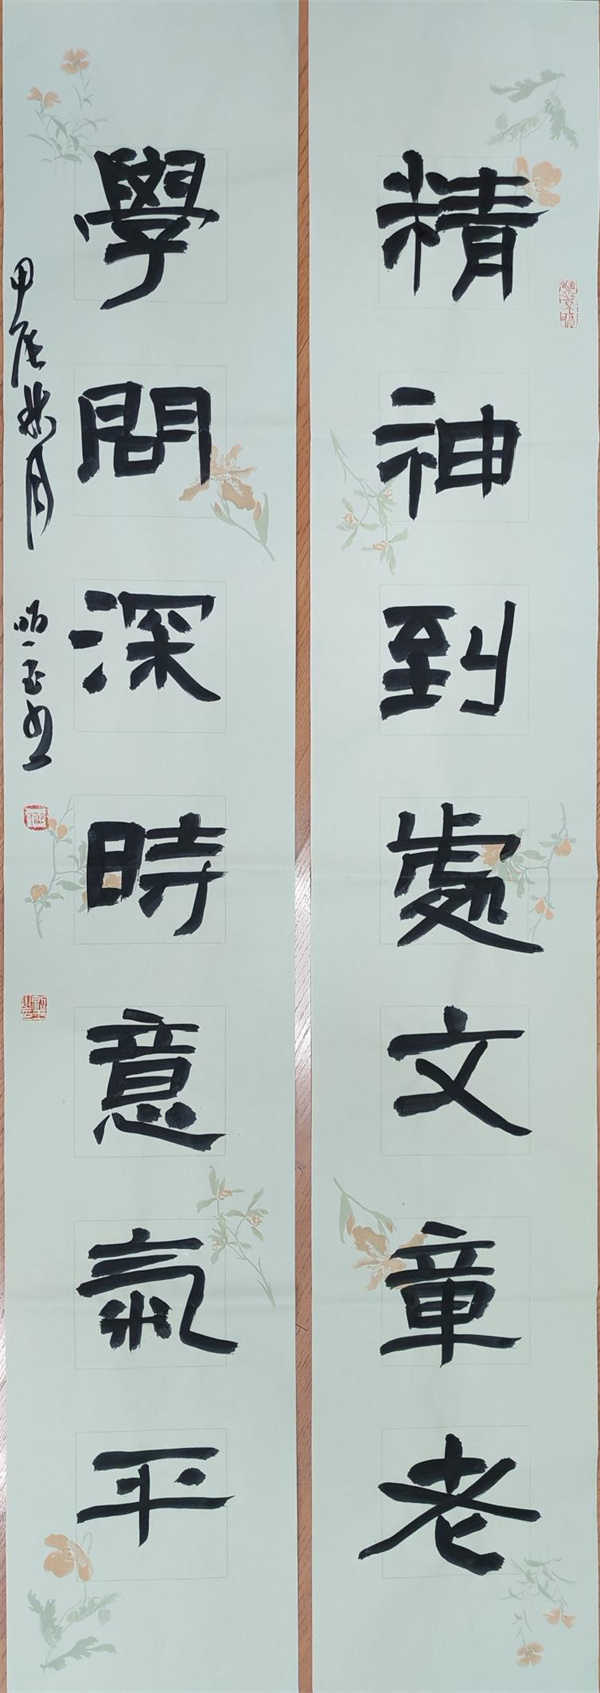 精神到處文章老
學問深時意氣平
甲辰 月